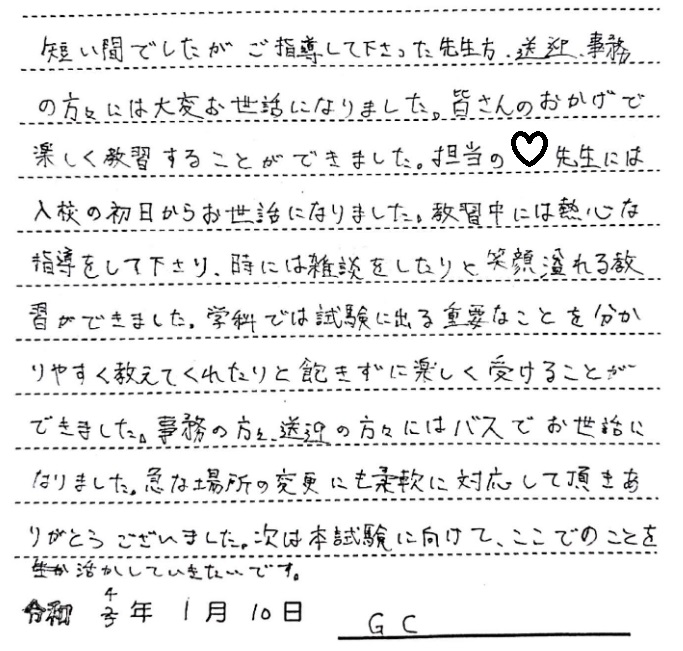 短い間でしたがご指導して下さった先生方、送迎、事務
の方々には大変お世話になりました。皆さんのおかげで
楽しく教習することができました。担当の♡先生には
入校の初日からお世話になりました。教習中には熱心な
指導をして下さり、時には雑談をしたりと笑顔溢れる教
習ができました。学科では試験に出る重要なことを分か
りやすく教えてくれたりと飽きずに楽しく受けることが
できました。事務の方々、送迎の方々にはバスでお世話に
なりました。急な場所の変更にも柔軟に対応して頂きあ
りがとうございました。次は本試験に向けて、ここでのことを
活かしていきたいです。
令和 4年 1月 10日 GC